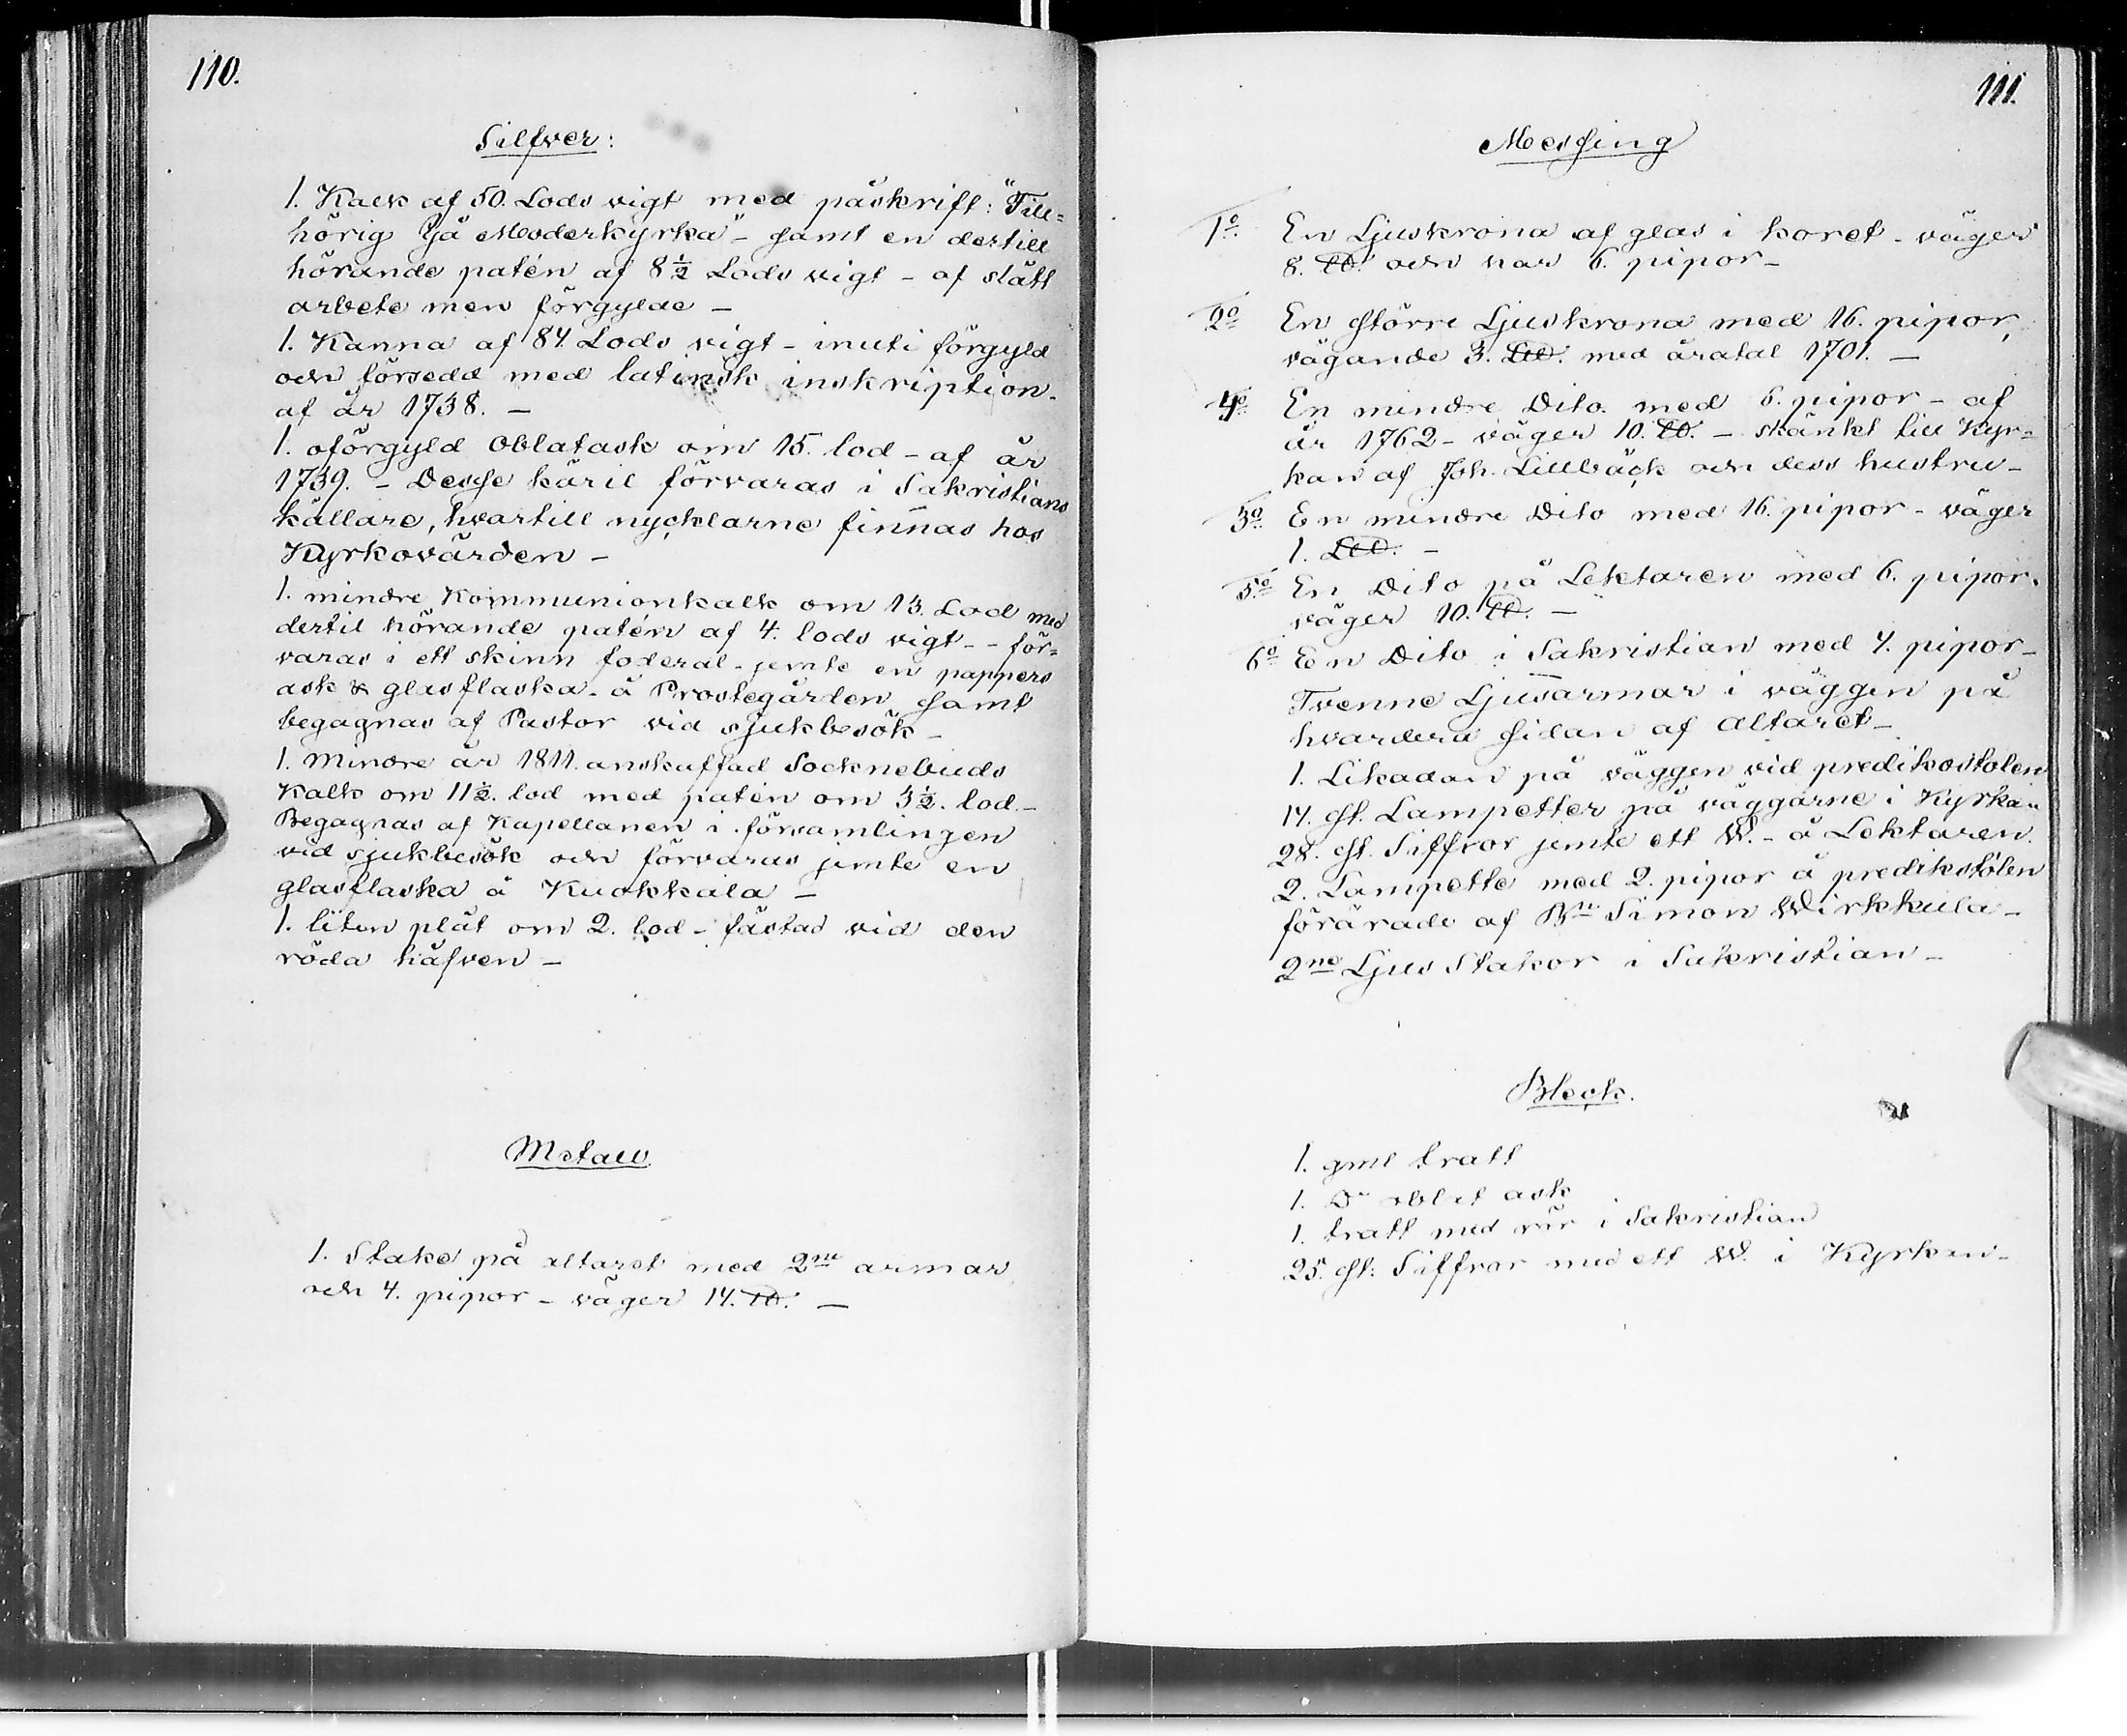 110.
Silfver:
1. Kalk af 50. Lods vigt med påskrift: "Till=
hörig Ijå Moderkyrka" - samt en dertill
hörande patén af 8 1/2 Lods vigt - af slätt
arbete men förgylde -
1. Kanna af 84. Lods vigt - inuti förgyld
och försedd med latinsk inskription.
af år 1738. -
1. oförgyld Oblatask om 15. lod - af år
1739. - Desse käril förvaras i Sakristians
källare, hvartill nycklarne finnas hos
Kyrkovärden -
1. mindre Kommunionkalk om 13. Lod med
dertil hörande patén af 4. lods vigt - - för=
varas i ett skinn foderal - jemte en pappers
ask & glasflaska - å Prostegården samt
begagnas af Pastor vid sjukbesök -
1. Mindre år 1811. anskaffad Socknebuds
Kalk om 11 1/2. lod med patén om 3 1/2. lod. -
Begagnas af Kapellanen i församlingen
vid sjukbesök och förvaras jemte en
glasflaska å Kuokkala -
1. liten plåt om 2. lod - fästad vid den
röda håfven -
Metall
1. Stake på altaret med 2ne armar
och 4. pipor - väger 14. ℔. -
111.
Messing
1o. En Ljuskrona af glas i koret - väger
8. ℔. och har 6. pipor -
2o En större Ljuskrona med 16. pipor,
vägande 3. L℔. med åratal 1701. -
4o En mindre Dito. med 6. pipor - af
år 1762 - väger 10. ℔. - skänkt till Kyr=
kan af Joh. Lillbäck och dess hustru -
3o. En mindre Dito med 16. pipor - väger
1. L℔. -
5o. En Dito på Lektaren med 6. pipor.
väger 10. ℔. -
6o En Dito i Sakristian med 4. pipor -
Tvenne Ljusarmar i väggen på
hvardera sidan af Altaret -
1. Likadan på väggen vid predikostolen
14. st. Lampetter på väggarne i Kyrkan
28. st. Siffror jemte ett W. - å Lektaren.
2. Lampette med 2. pipor å predikstolen
förärade af Bn Simon Wirkkula -
2ne Ljus Stakor i Sakristian -
Bleck.
1. gml tratt
1. Do oblat ask
1. tratt med rör i Sakristian
25. st: Siffror med ett W. i Kyrkan -